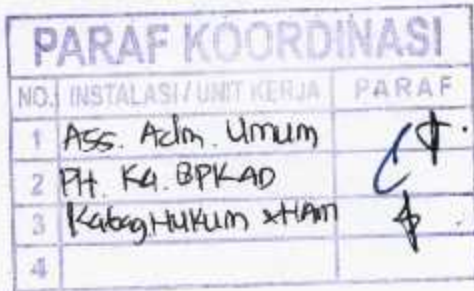 PARAF KOORDINASI
NO. INSTALASI / UNIT KERJA PARAF
1 Ass. Adm. Umum
2 PH. Ka. BPKAD
3 Kabag Hukum & HAM
4